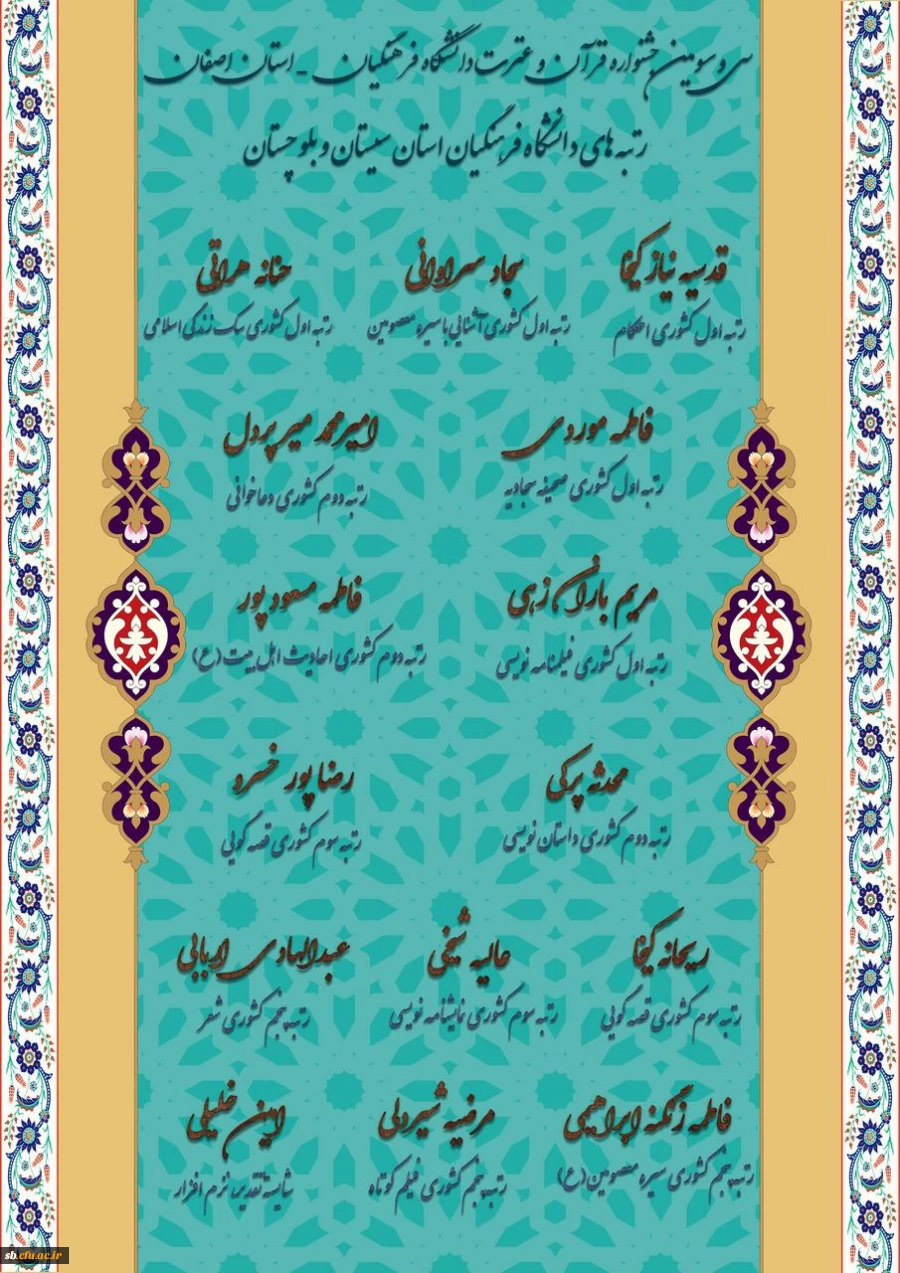 سی و سومین جشنواره قرآن و عترت دانشگاه فرهنگیان - استان اصفهان
رتبه های دانشگاه فرهنگیان استان سیستان و بلوچستان
قدسیه نیاز کیخا
رتبه اول کشوری احکام
سجاد سراوانی
رتبه اول کشوری آشنایی با سیره معصومین
حنانه هراتی
رتبه اول کشوری سبک زندگی اسلامی
فاطمه موردی
رتبه اول کشوری صحیفه سجادیه
امیرمحمد میر پردل
رتبه دوم کشوری دعاخوانی
مریم باران زهی
رتبه اول کشوری فیلمنامه نویسی
فاطمه مسعود پور
رتبه دوم کشوری احادیث اهل بیت (ع)
محدثه پرکی
رتبه دوم کشوری داستان نویسی
رضا پور خسرو
رتبه سوم کشوری قصه گویی
ریحانه کیخا
رتبه سوم کشوری قصه گویی
عالیه شیخی
رتبه سوم کشوری نمایشنامه نویسی
عبدالهادی اربابی
رتبه پنجم کشوری شعر
فاطمه زنگنه ابراهیمی
رتبه پنجم کشوری سیره معصومین (ع)
مرضیه شیردلی
رتبه پنجم کشوری فیلم کوتاه
امین خلیلی
شایسته تقدیر نرم افزار
sb.cfu.ac.ir